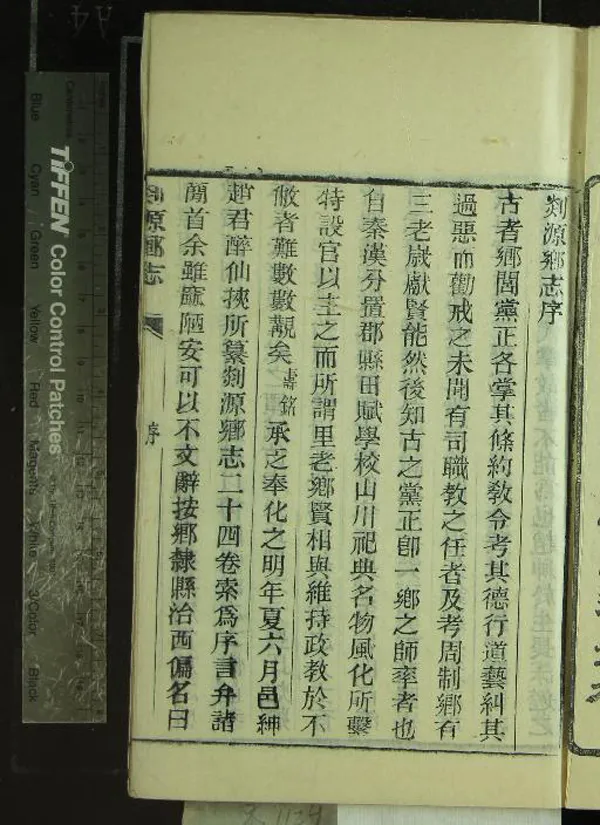 剡源鄉志序
古者鄉閭黨正各掌其條約敎令考其德行道藝糾其
過惡而勸戒之未聞有司職教之任者及考周制鄉有
三老歲獻賢能然後知古之黨正卽一鄉之師率者也
自秦漢分置郡縣田賦學校山川祀典名物風化所繫
特設官以主之而所謂里老鄉賢相與維持政教於不
敝者難數數觀矣壽銘承乏奉化之明年夏六月邑紳
趙君醉仙挾所纂剡源鄉志二十四卷索爲序言弁諸
簡首余雖窳陋安可以不文辭按鄉隸縣治西偏名曰
剡源鄉志
序
TIFFEN Color Control Patches
Blue
Cyan
Green
Yellow
Red
Magenta
White
3/Color
Black